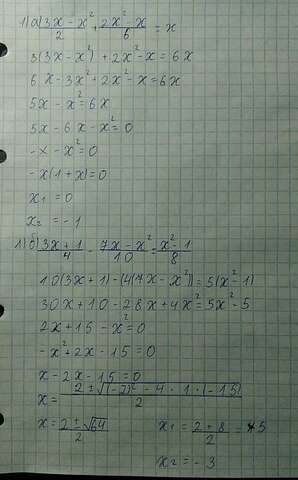 1) а) (3x - x²)/2 + (2x² - x)/6 = x
3(3x - x²) + 2x² - x = 6x
6x - 3x² + 2x² - x = 6x
5x - x² = 6x
5x - 6x - x² = 0
-x - x² = 0
-x(1+x) = 0
x₁ = 0
x₂ = -1
1) б) (3x + 1)/4 - (7x - x²)/10 = (x² - 1)/8
10(3x + 1) - (4(7x - x²)) = 5(x² - 1)
30x + 10 - 28x + 4x² = 5x² - 5
2x + 15 - x² = 0
-x² + 2x - 15 = 0
x - 2x - 15 = 0
x = (2 ± √((-2)² - 4 · 1 · (-15)))/2
x = (2 ± √64)/2 x₁ = (2 + 8)/2 = 5
x₂ = -3